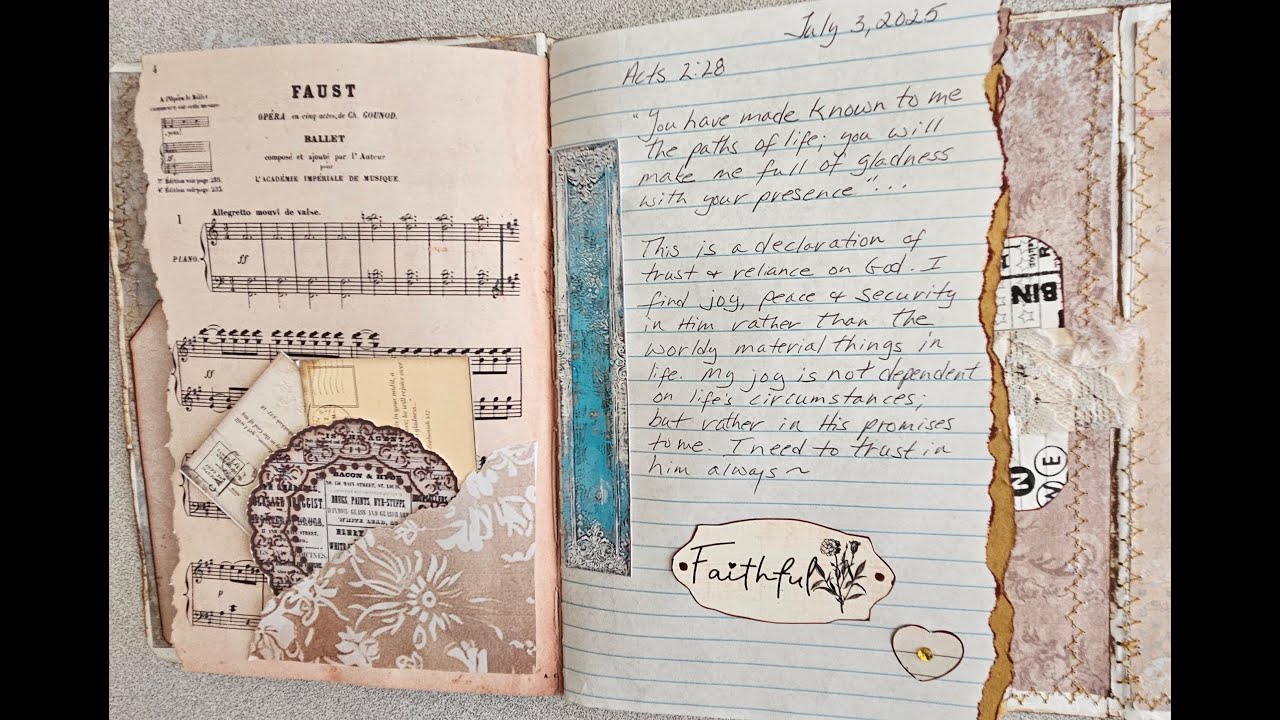 4
A l'Opéra le Ballet
commence sur cette mesure
FAUST
OPÉRA en cinq actes, de Ch. GOUNOD.
BALLET
composé et ajouté par l'Auteur
pour
L'ACADÉMIE IMPÉRIALE DE MUSIQUE.
1
Allegretto mouvt de valse.
PIANO.
ff
ff
p
in your midst, a
he will rejoice over
gladness
BACON & HYDE
DRUGS, PAINTS, DYE-STUFFS,
WHITE LEAD,
HENRY
July 3, 2025
Acts 2:28
"You have made known to me
the paths of life; you will
make me full of gladness
with your presence"...
This is a declaration of
trust & reliance on God. I
find joy, peace & security
in Him rather than the
worldy material things in
life. My joy is not dependent
on life's circumstances;
but rather in His promises
to me. I need to trust in
him always~
Faithful
BIN
N
W E